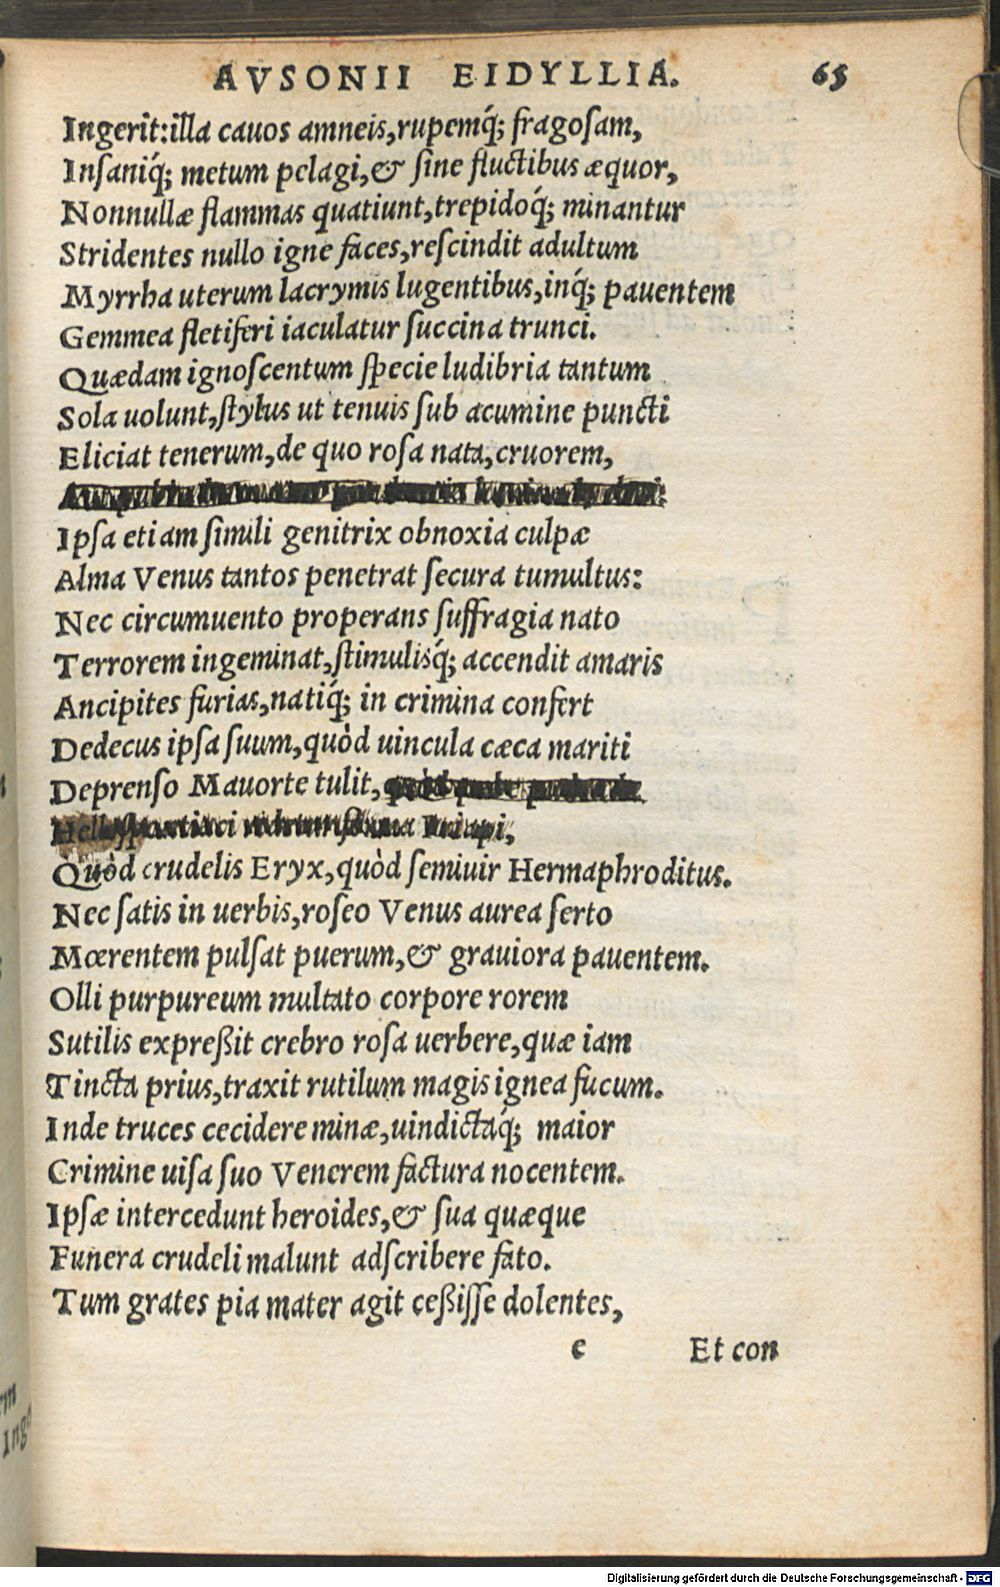 AVSONII EIDYLLIA. 65
Ingerit:illa cauos amneis,rupemq́; fragoſam,
Inſaniq́; metum pelagi,& ſine fluctibus æquor,
Nonnullæ flammas quatiunt,trepidoq́; minantur
Stridentes nullo igne faces,reſcindit adultum
Myrrha uterum lacrymis lugentibus,inq́; pauentem
Gemmea fletiferi iaculatur ſuccina trunci.
Quædam ignoſcentum ſpecie ludibria tantum
Sola uolunt,ſtylus ut tenuis ſub acumine puncti
Eliciat tenerum,de quo roſa nata,cruorem,
Ipſa etiam ſimili genitrix obnoxia culpæ
Alma Venus tantos penetrat ſecura tumultus:
Nec circumuento properans ſuffragia nato
Terrorem ingeminat,ſtimulisq́; accendit amaris
Ancipites furias,natiq́; in crimina confert
Dedecus ipſa ſuum,quòd uincula cæca mariti
Deprenſo Mauorte tulit,
Quòd crudelis Eryx,quòd ſemiuir Hermaphroditus.
Nec ſatis in uerbis,roſeo Venus aurea ſerto
Mœrentem pulſat puerum,& grauiora pauentem.
Olli purpureum multato corpore rorem
Sutilis expreßit crebro roſa uerbere,quæ iam
Tincta prius,traxit rutilum magis ignea fucum.
Inde truces cecidere minæ,uindictaq́; maior
Crimine uiſa ſuo Venerem factura nocentem.
Ipſæ intercedunt heroides,& ſua quæque
Funera crudeli malunt adſcribere fato.
Tum grates pia mater agit ceßiſſe dolentes,
e Et con
Digitalisierung gefördert durch die Deutsche Forschungsgemeinschaft - DFG